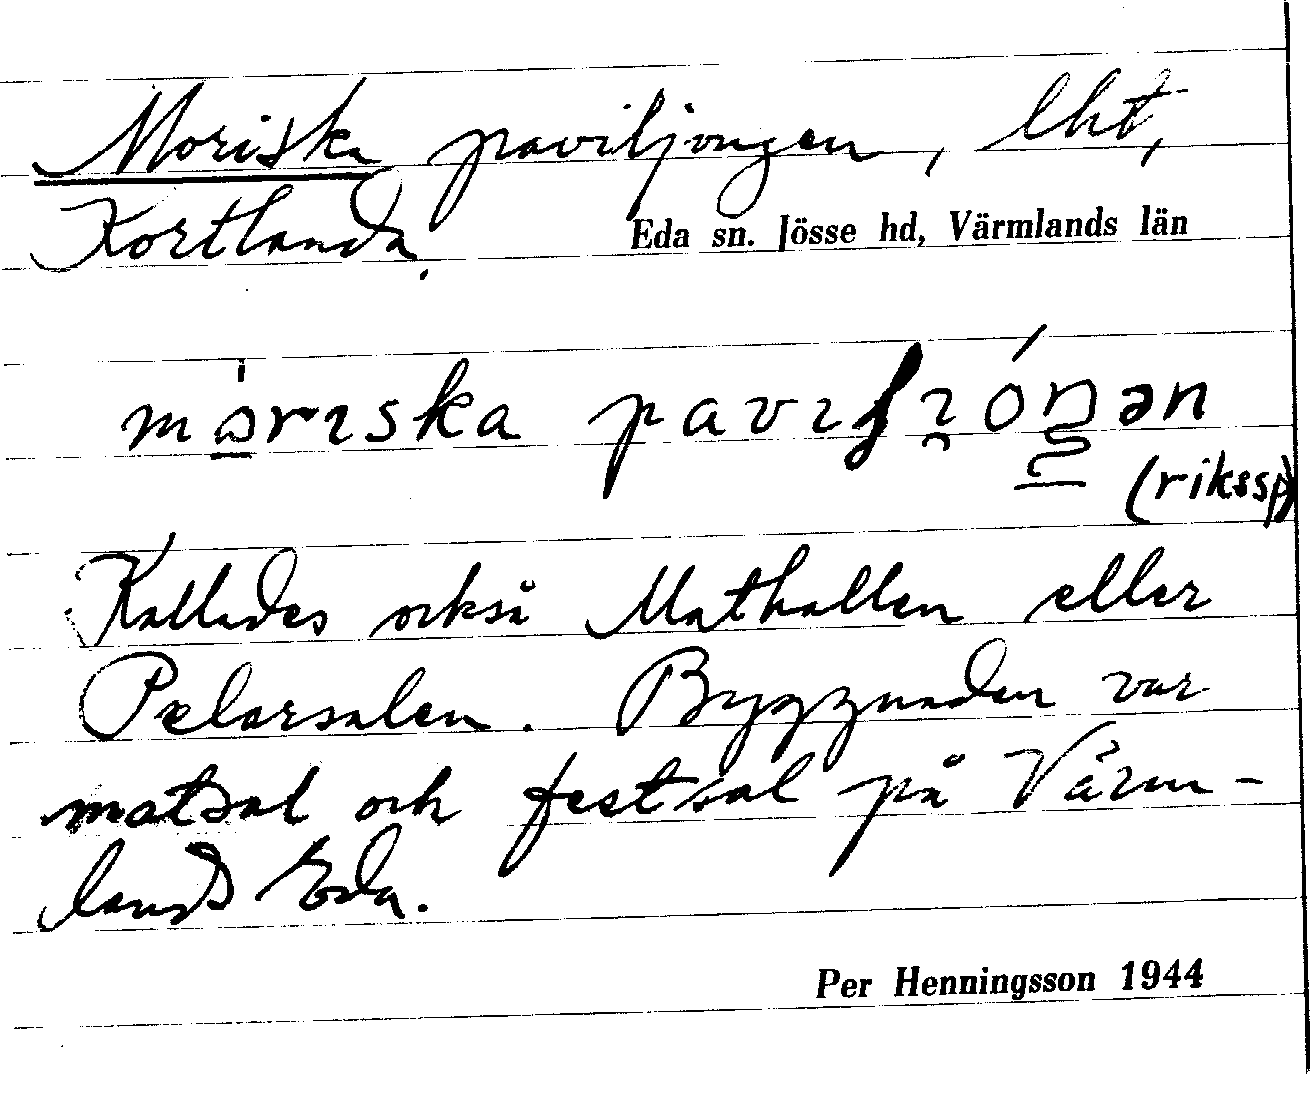 Moriska paviljongen, lht,
Kortlanda.
Eda sn. Jösse hd, Värmlands län
(rikssp)
Kallades också Mathallen eller
Pelarsalen. Byggnaden var
matsal och festsal på Värm-
lands Eda.
Per Henningsson 1944